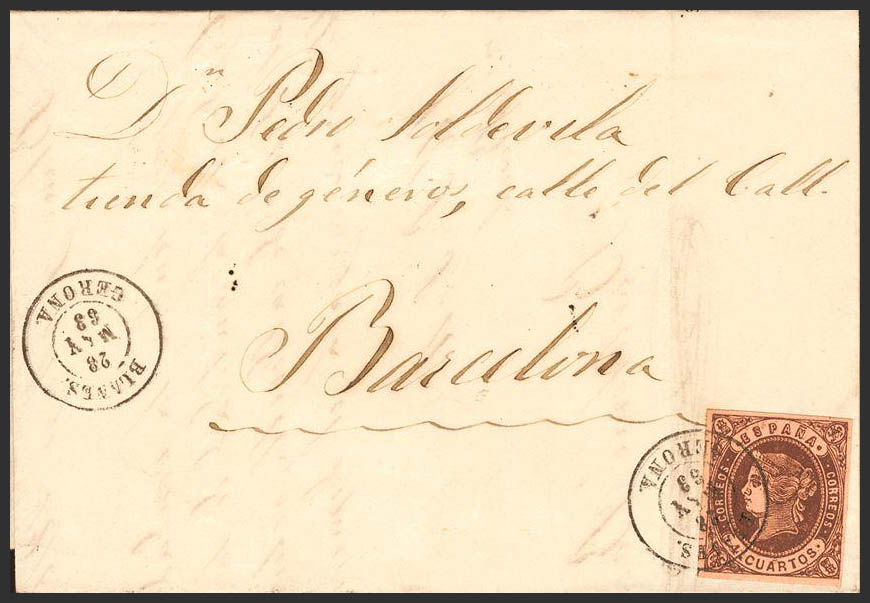 Dn Pedro Soldevila
tienda de géneros, calle del Call.
Barcelona
BLANES.
28
MAY
63
GERONA.
ESPAÑA
CORREOS
CORREOS
4 CUARTOS.
GERONA
63